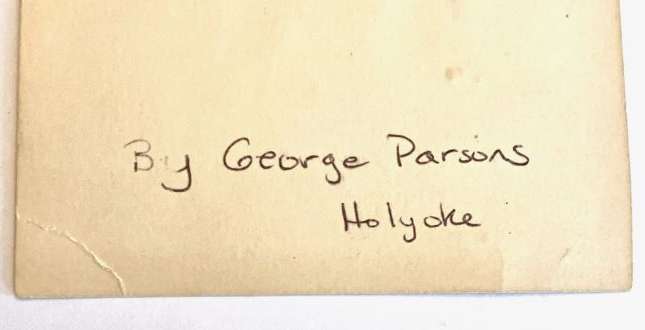 By George Parsons
Holyoke